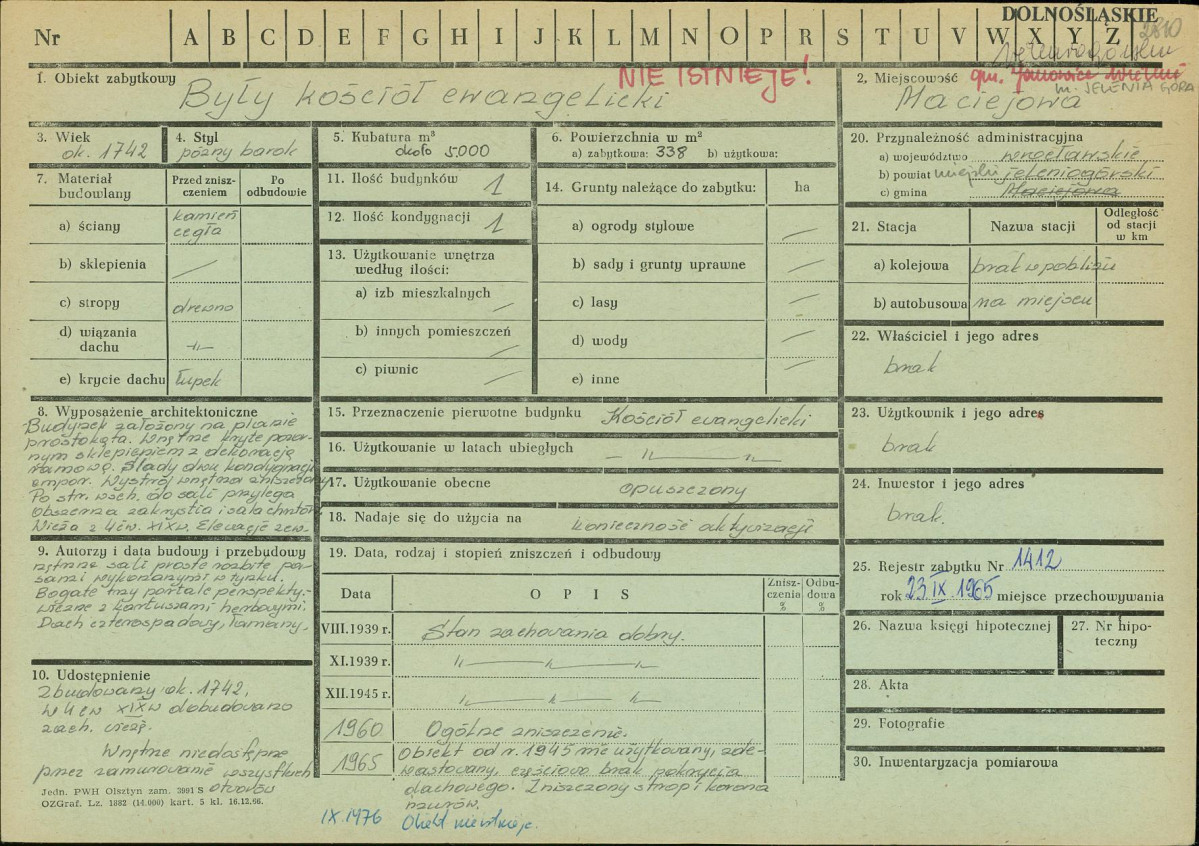 DOLNOŚLĄSKIE
Nr A B C D E F G H I J K L M N O P R S T U V W X Y Z
2810
NIE ISTNIEJE!
1. Obiekt zabytkowy
Były kościół ewangelicki
2. Miejscowość gm. Janowice Wielkie
m. JELENIA GÓRA
Maciejowa
3. Wiek
ok. 1742
4. Styl
późny barok
5. Kubatura m³
około 5.000
6. Powierzchnia w m²
a) zabytkowa: 338 b) użytkowa:
7. Materiał budowlany
Przed zniszczeniem
Po odbudowie
a) ściany kamień cegła
b) sklepienia —
c) stropy drewno
d) wiązania dachu -„-
e) krycie dachu łupek
11. Ilość budynków 1
12. Ilość kondygnacji 1
13. Użytkowanie wnętrza
według ilości:
a) izb mieszkalnych —
b) innych pomieszczeń —
c) piwnic —
14. Grunty należące do zabytku: ha
a) ogrody stylowe —
b) sady i grunty uprawne —
c) lasy —
d) wody —
e) inne —
20. Przynależność administracyjna
a) województwo wrocławskie
b) powiat miejski jeleniogórski
c) gmina Maciejowa
21. Stacja Nazwa stacji Odległość od stacji w km
a) kolejowa brak w pobliżu
b) autobusowa na miejscu
22. Właściciel i jego adres
brak
8. Wyposażenie architektoniczne
Budynek założony na planie
prostokąta. Wnętrze kryte pozor-
nym sklepieniem z dekoracją
ramową. Ślady dwu kondygnacji
empor. Wystrój wnętrza zniszczony
Po str. wsch. do sali przylega
obszerna zakrystia i sala chrztów
Wieża z 4 ćw. XIX w. Elewacje zew-
9. Autorzy i data budowy i przebudowy
nętrzne sali proste rozbite pa-
sami wykonanymi w tynku.
Bogate trzy portale perspekty-
wiczne z kartuszami herbowymi.
Dach czterospadowy, łamany.
10. Udostępnienie
Zbudowany ok. 1742,
w 4 ćw XIX w dobudowano
zach. wieżę.
Wnętrze niedostępne
przez zamurowanie wszystkich
otworów
15. Przeznaczenie pierwotne budynku Kościół ewangelicki
16. Użytkowanie w latach ubiegłych — „ — „ —
17. Użytkowanie obecne opuszczony
18. Nadaje się do użycia na konieczność aktywizacji
19. Data, rodzaj i stopień zniszczeń i odbudowy
Data OPIS Zniszczenia % Odbudowa %
VIII.1939 r. Stan zachowania dobry.
XI.1939 r. „ — „ — „
XII.1945 r. „ — „ — „
1960 Ogólne zniszczenie.
1965 Obiekt od r. 1945 nie użytkowany, zde-
wastowany, częściowo brak pokrycia
dachowego. Zniszczony strop i korona
murów.
IX.1976 Obiekt nie istnieje.
23. Użytkownik i jego adres
brak
24. Inwestor i jego adres
brak.
25. Rejestr zabytku Nr 1412
rok 23 IX 1965 miejsce przechowywania
26. Nazwa księgi hipotecznej
27. Nr hipoteczny
28. Akta
29. Fotografie
30. Inwentaryzacja pomiarowa
Jedn. PWH Olsztyn zam. 3991 S
OZGraf. Lz. 1882 (14.000) kart. 5 kl. 16.12.66.